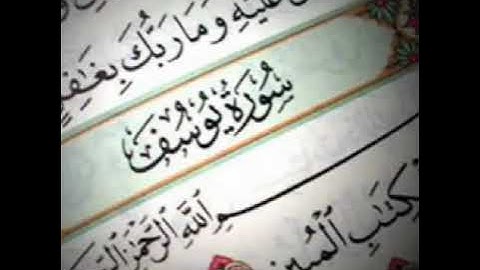 عَلَيْهِ وَمَا رَبُّكَ بِغَٰفِلٍ
سُورَةُ يُوسُفَ
بِسْمِ اللَّهِ الرَّحْمَٰنِ
ٱلْكِتَٰبِ ٱلْمُبِينِ